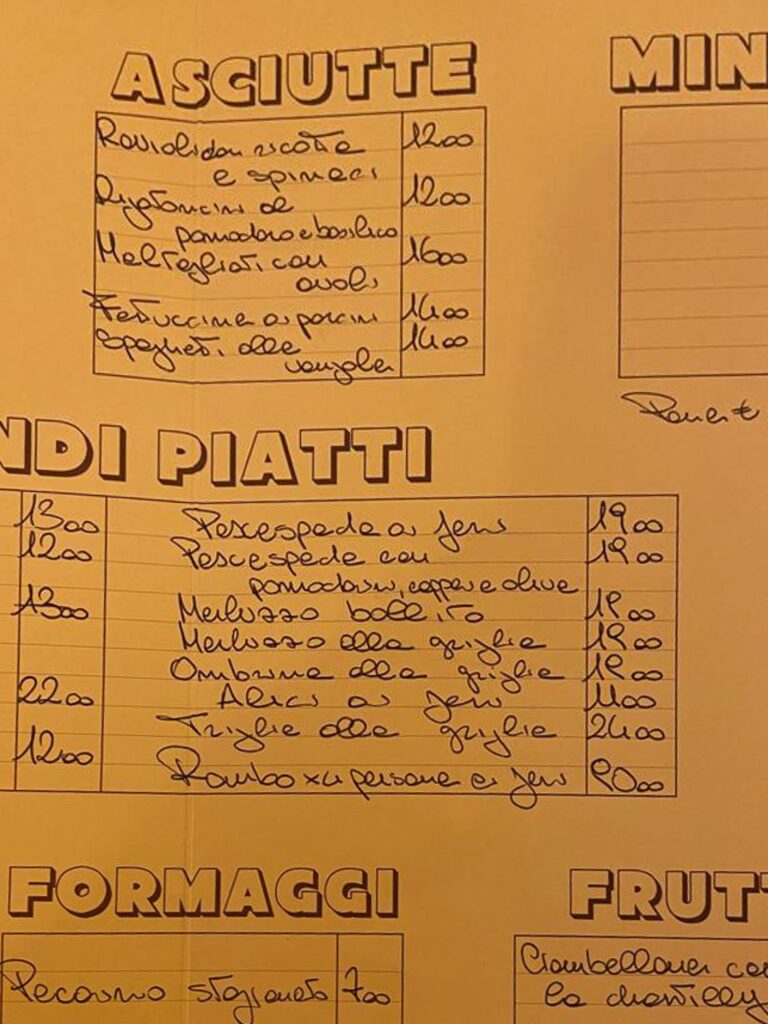 ASCIUTTE
MIN
Ravioli con ricotta 12 00
e spinaci
Rigatoncini al 12 00
pomodoro e basilico
Maltagliati con 16 00
ovoli
Fettuccine ai porcini 14 00
Spaghetti alle 14 00
vongole
NDI PIATTI
13 00 Pescespada ai ferri 19 00
12 00 Pescespada con 19 00
pomodorini, capperi e olive
13 00 Merluzzo bollito 19 00
Merluzzo alla griglia 19 00
Ombrina alla griglia 19 00
22 00 Alici ai ferri 11 00
Triglie alla griglia 24 00
12 00
Rombo x 4 persone ai ferri 90 00
FORMAGGI
FRUTT
Pecorino stagionato 7 00
Ciambellone con
la chantilly